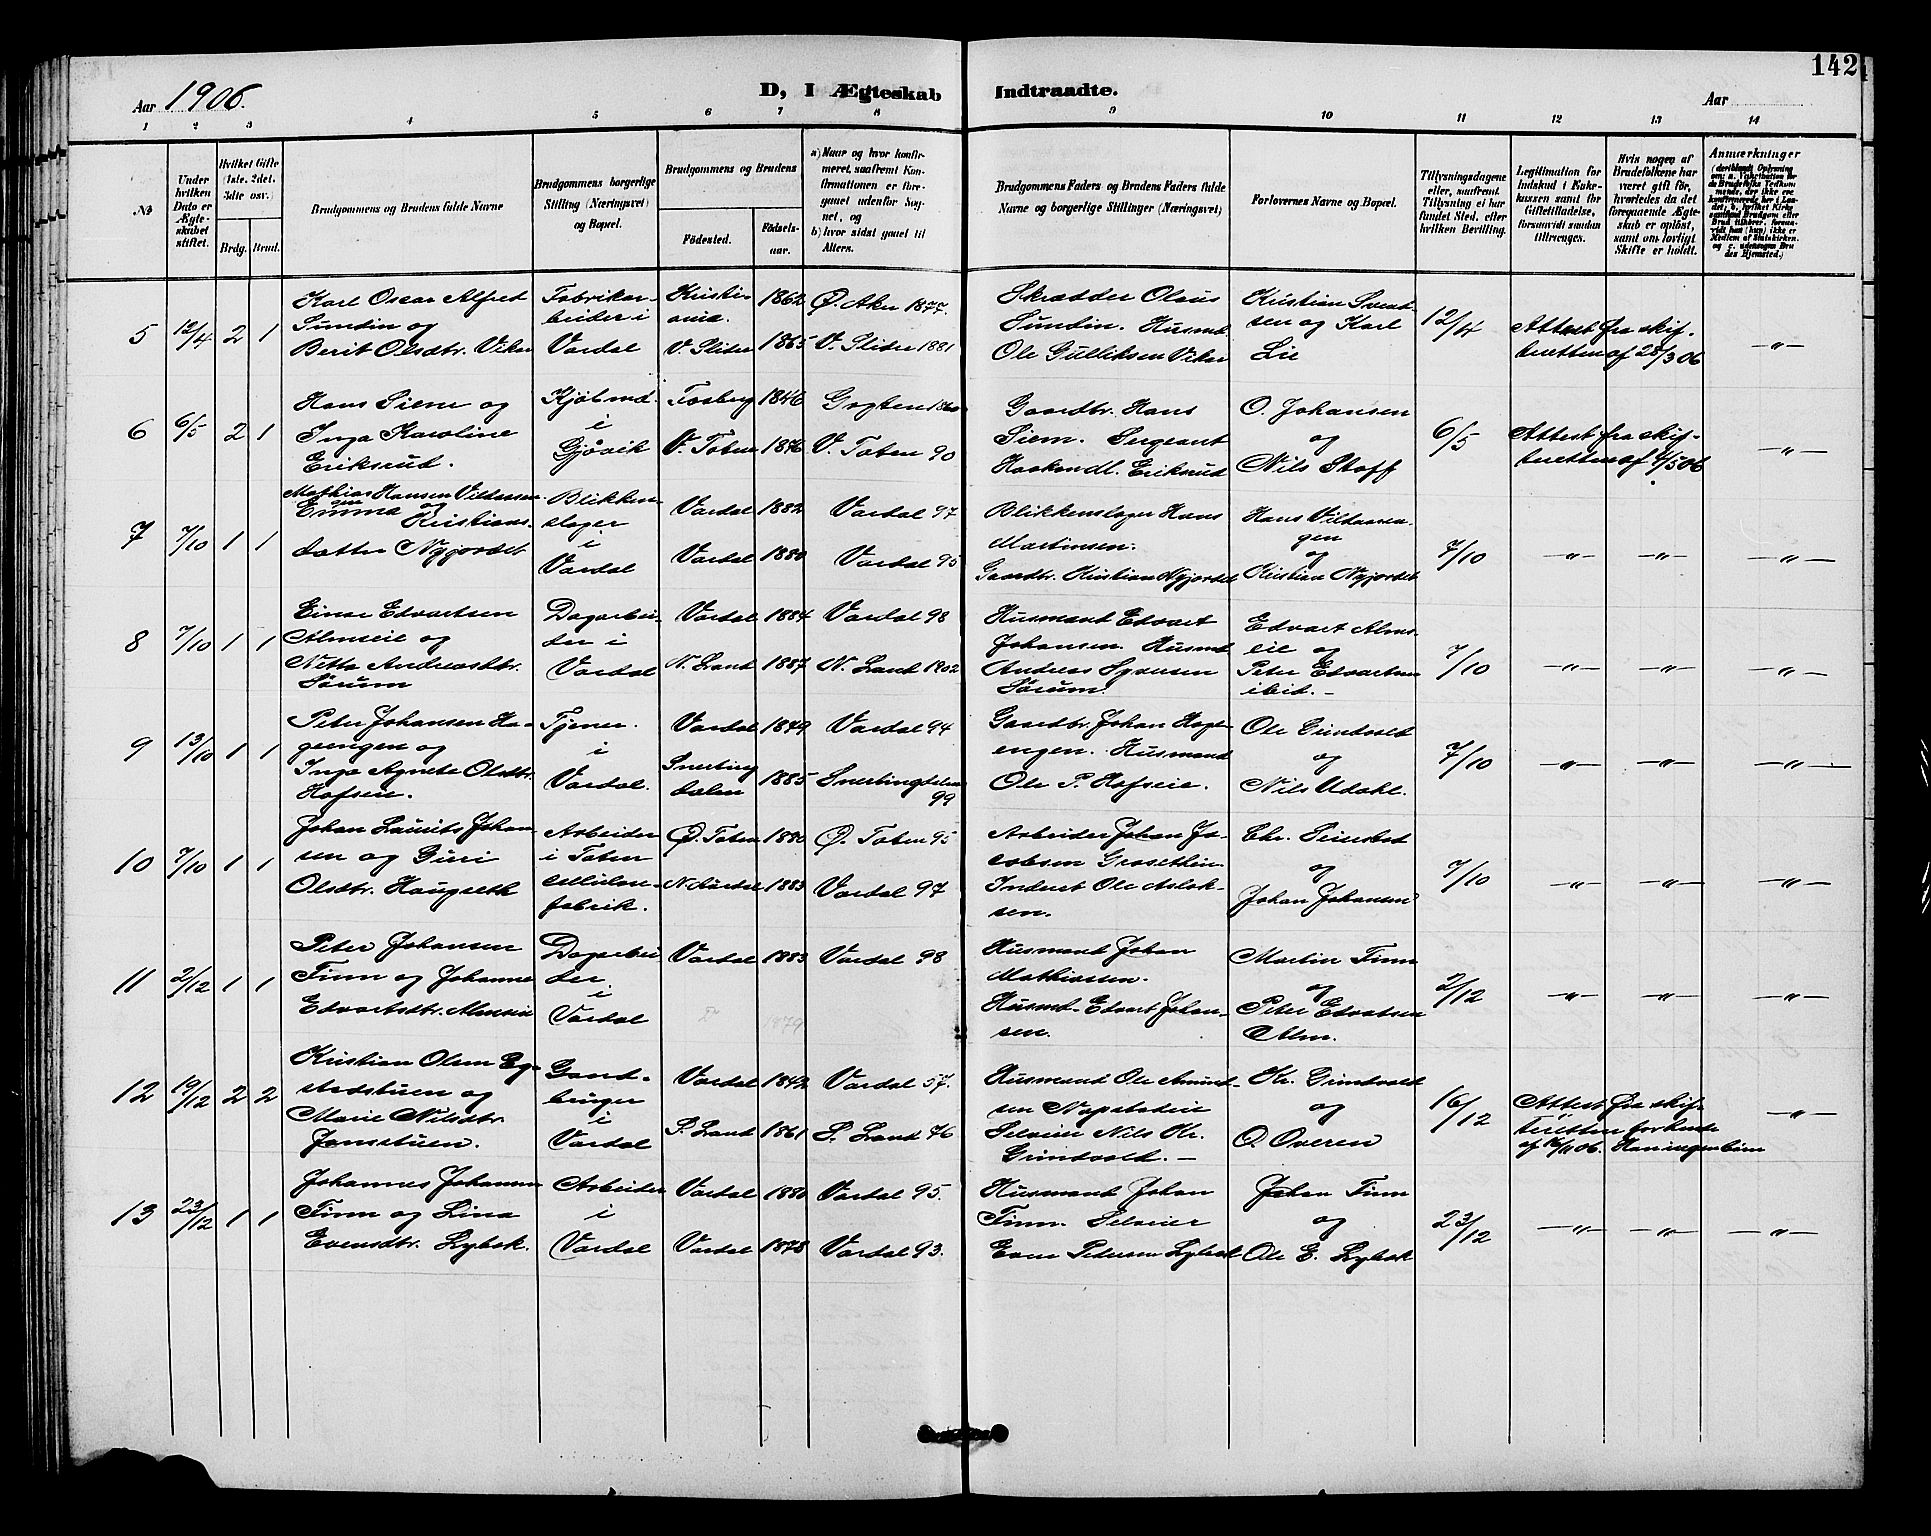 142
Aar 1906.
D, I Ægteskab Indtraadte.
Aar
1 2 3 4 5 6 7 8 9 10 11 12 13 14
№
Under hvilken Dato er Ægteskabet stiftet.
Hvilket Gifte (1ste, 2det, 3die osv.)
Brdg. Brud.
Brudgommens og Brudens fulde Navne
Brudgommens borgerlige Stilling (Næringsvei) og Bopæl.
Brudgommens og Brudens
Fødested.
Fødselsaar.
a) Naar og hvor konfirmeret, saafremt Konfirmationen er foregaaet udenfor Sognet, og
b) hvor sidst gaaet til Alters.
Brudgommens Faders og Brudens Faders fulde Navne og borgerlige Stillinger (Næringsvei)
Forlovernes Navne og Bopæl.
Tillysningsdagene eller, saafremt Tillysning ei har fundet Sted, efter hvilken Bevilling.
Legitimation for Indskud i Enkekassen samt for Giftetilladelse, forsaavidt saadan tiltrænges.
Hvis nogen af Brudefolkene har været gift før, hvorledes da det foregaaende Ægteskab er opløst, samt om lovligt Skifte er holdt.
Anmærkninger
5 12/4 2 1
Karl Oscar Alfred
Sundin og
Berit Olsdtr. Viken
Fabrikar-
beider i
Vardal
Kristi-
ania
V. Slidre
1862
1865
Ø. Aker 1877.
V. Slidre 1881
Skrædder Olaus
Sundin. Husmd
Ole Gulliksen Viken
Kristian Svend-
sen og Karl
Lie
12/4
Attest fra skif-
teretten af 28/3 06
—"—
6 6/5 2 1
Hans Siem og
Inga Karoline
Eriksrud.
Kjøbmd.
i
Gjøvik
Faaberg
V. Toten
1846
1876
V. Toten 90
Gaardbr. Hans
Siem. Sergeant
Haakon dl. Eriksrud
O. Johansen
og
Nils Skaff
6/5
Attest fra skif-
teretten af 4/5 06
—"—
7 7/10 1 1
Mathias Hansen Vildaasen
Emma og Kristians-
datter Nyjordet
Blikken-
slager
i
Vardal
Vardal
Vardal
1882
1880
Vardal 97
Vardal 95
Blikkenslager Hans
Martinsen.
Gaardbr. Kristian Nyjordet
Hans Vildaasen-
gen
og
Kristian Nyjordet
7/10
—"— —"— —"—
8 7/10 1 1
Einar Edvartsen
Almseie og
Netta Andreasdtr.
Sørum
Dagarbei-
der i
Vardal
Vardal
N. Land
1884
1887
Vardal 98
N. Land 1902
Husmand Edvart
Johansen. Husmd
Andreas Syversen
Sørum.
Edvart Alms-
eie og
Peter Edvartsen
ibid. —
7/10
—"— —"— —"—
9 13/10 1 1
Peter Johansen Ha-
geengen og
Inga Agnete Olsdtr.
Hofseie.
Tjener.
i
Vardal.
Vardal
Snerting-
dalen
1879
1885
Vardal 94
Snertingdalen
99
Gaardbr. Johan Hage-
engen. Husmand
Ole P. Hofseie.
Ole Grindvold
og
Nils Udahl.
7/10
—"— —"— —"—
10 7/10 1 1
Johan Laurits Johan-
sen og Guri
Olsdtr. Haugseth
Arbeider
i Toten
cellulose-
fabrik.
Ø. Toten
1880
1883
Ø. Toten 95
Vardal 97
Arbeider Johan Ja-
cobsen
Inderst Ole Aslak-
sen.
Chr. Seierstad
og
Johan Johansen
7/10
—"— —"— —"—
11 2/12 1 1
Peter Johansen
Finn og Johanne
Edvartsdtr. Almseie
Dagarbei-
der.
i
Vardal
Vardal
1883
1879
Vardal 98
Husmand Johan
Mathiassen.
Husmd. Edvart Johan-
sen.
Martin Finn
og
Peter Edvatsen
Alm.
2/12
—"— —"— —"—
12 19/12 2 2
Kristian Olsen Eg-
stadstuen og
Marie Nilsdtr.
Jonsstuen.
Gaard-
bruger
i
Vardal
Vardal
S. Land
1842
1861
Vardal 57.
S. Land 76
Husmand Ole Amund-
sen Napstadeie
Selveier Nils Kr.
Grindvold. —
Kr. Grindvold
og
O. Overen
16/12
Attest fra skif-
teretten for hende
af 16/11 06. Han ingen børn
—"—
13 23/12 1 1
Johannes Johansen
Finn og Lina
Evensdtr. Lybek.
Arbeider
i
Vardal
Vardal
Vardal
1880
1878
Vardal 95.
Vardal 93.
Husmand Johan
Finn. Selveier
Even Pedersen Lybek
Johan Finn
og
Ole E. Lybek
23/12
—"— —"— —"—